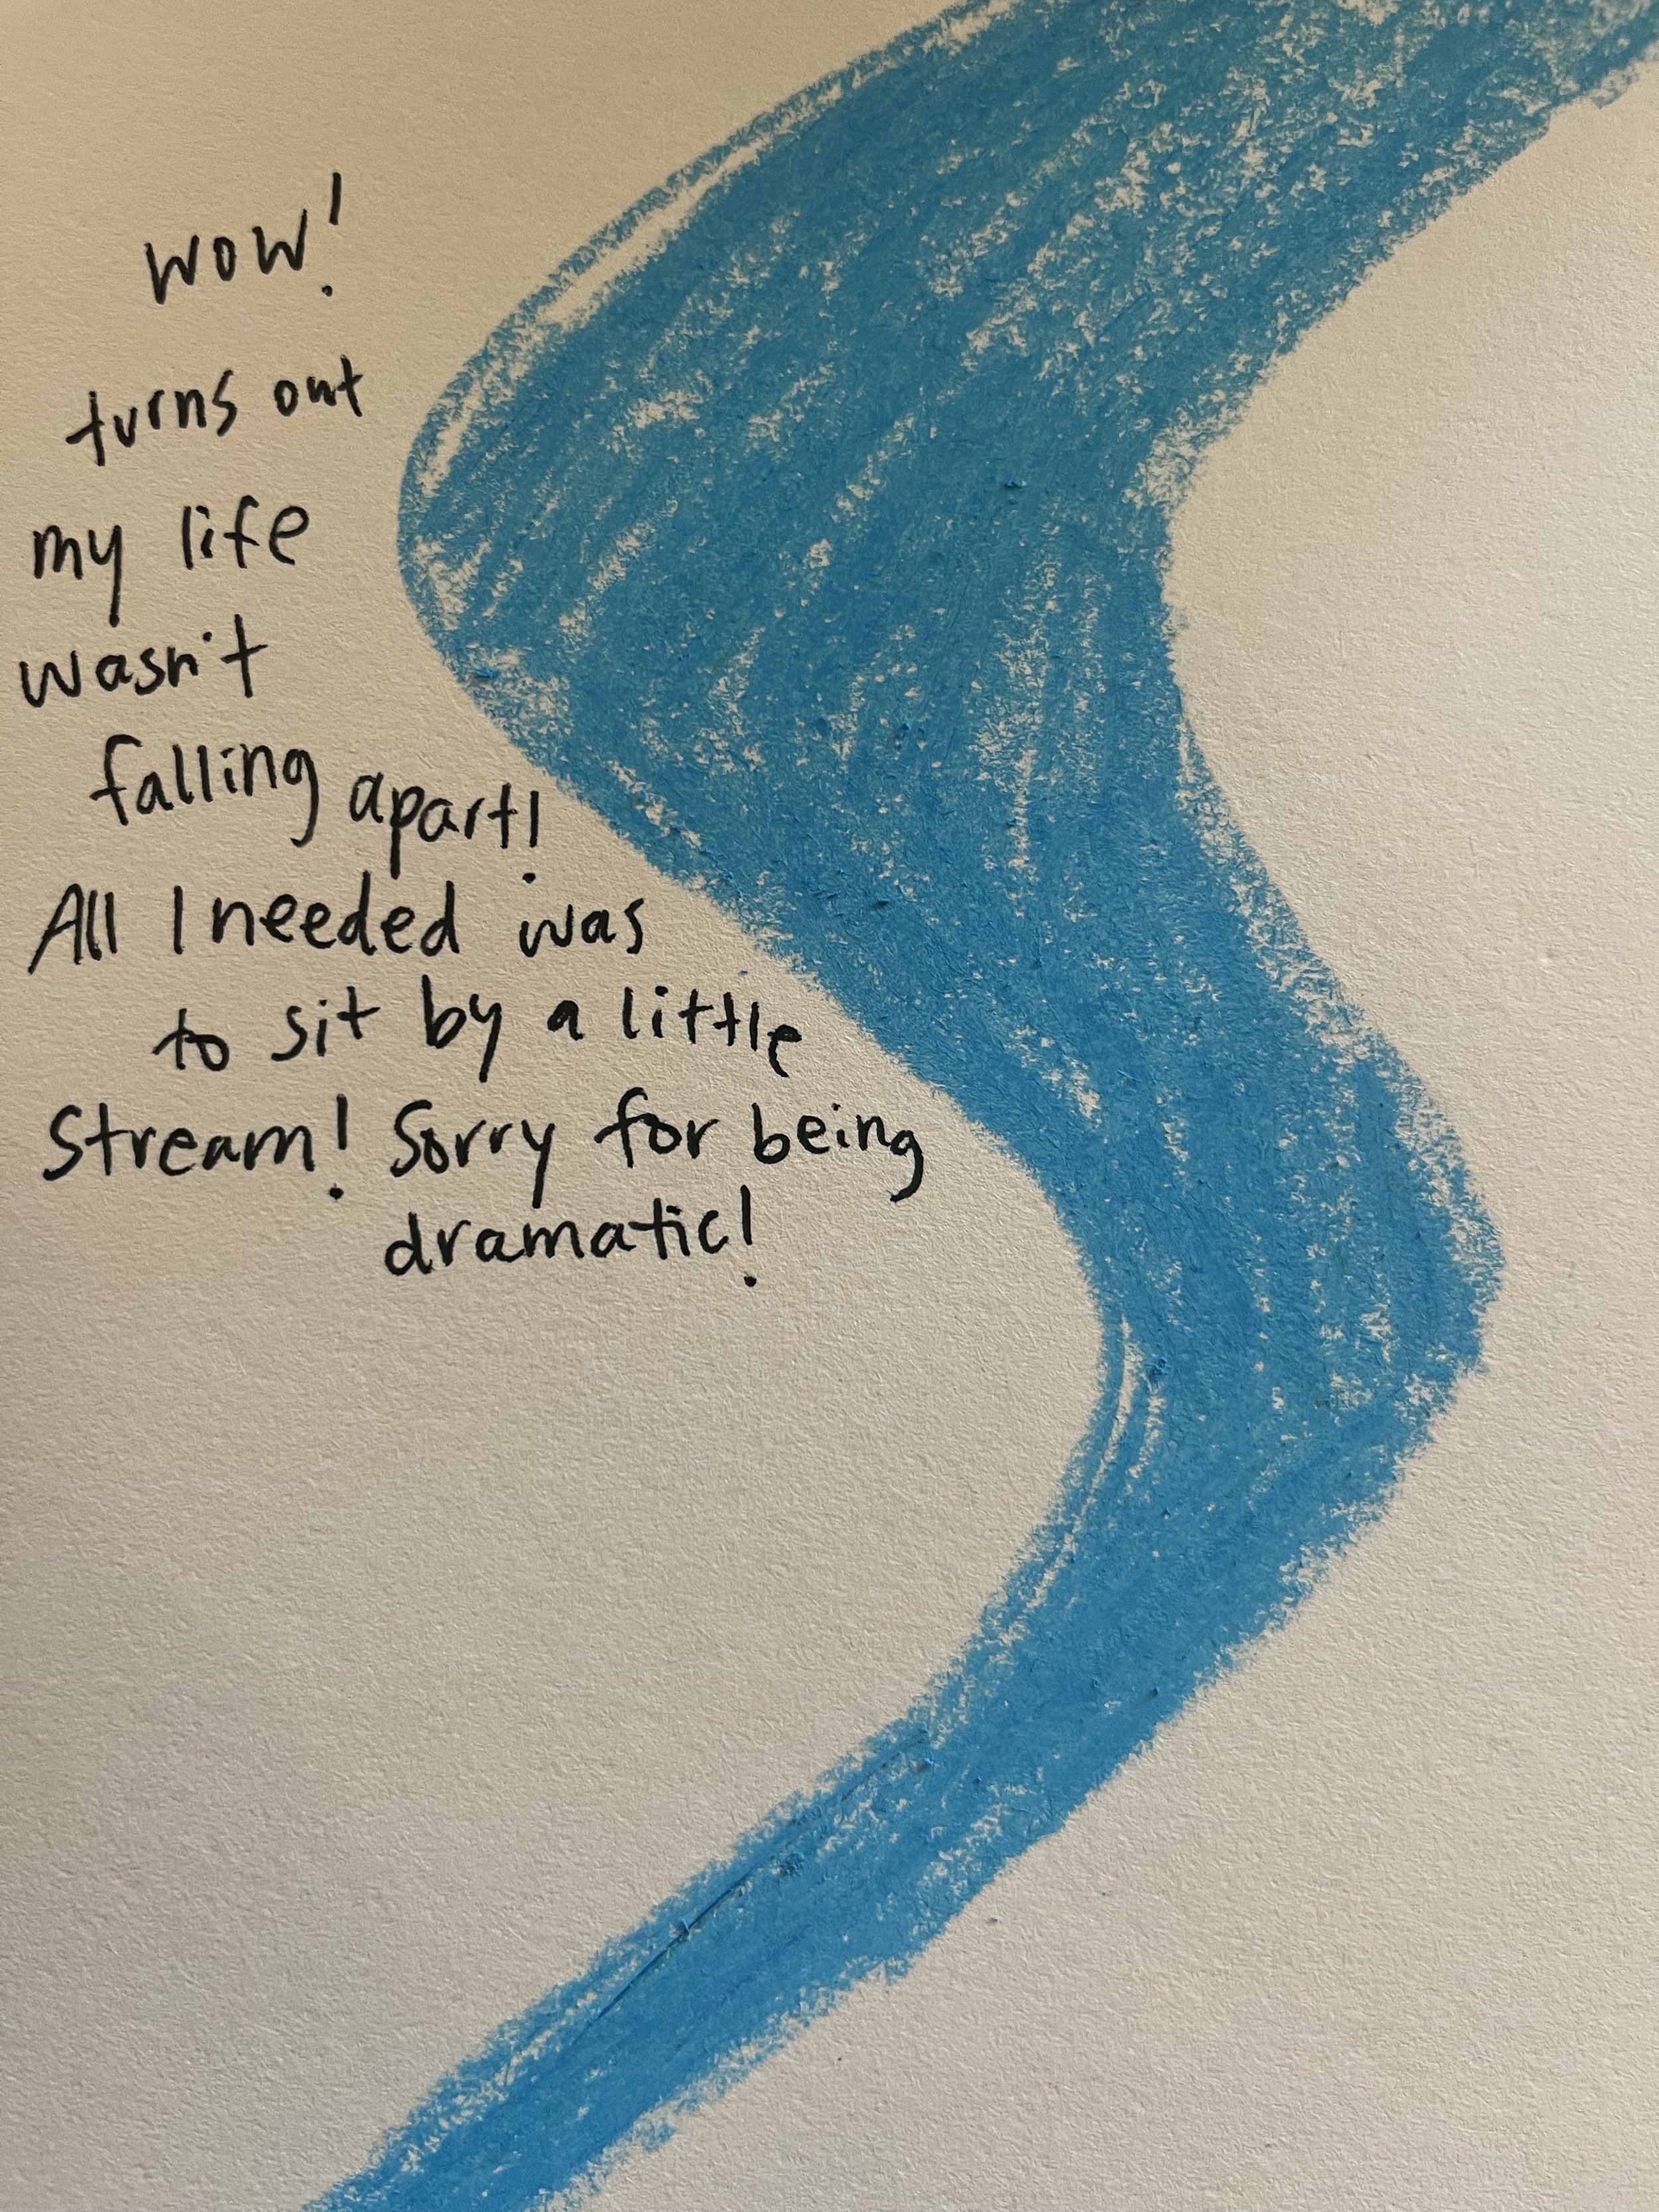 wow!
turns out
my life
wasn't
falling apart!
All I needed was
to sit by a little
Stream! Sorry for being
dramatic!